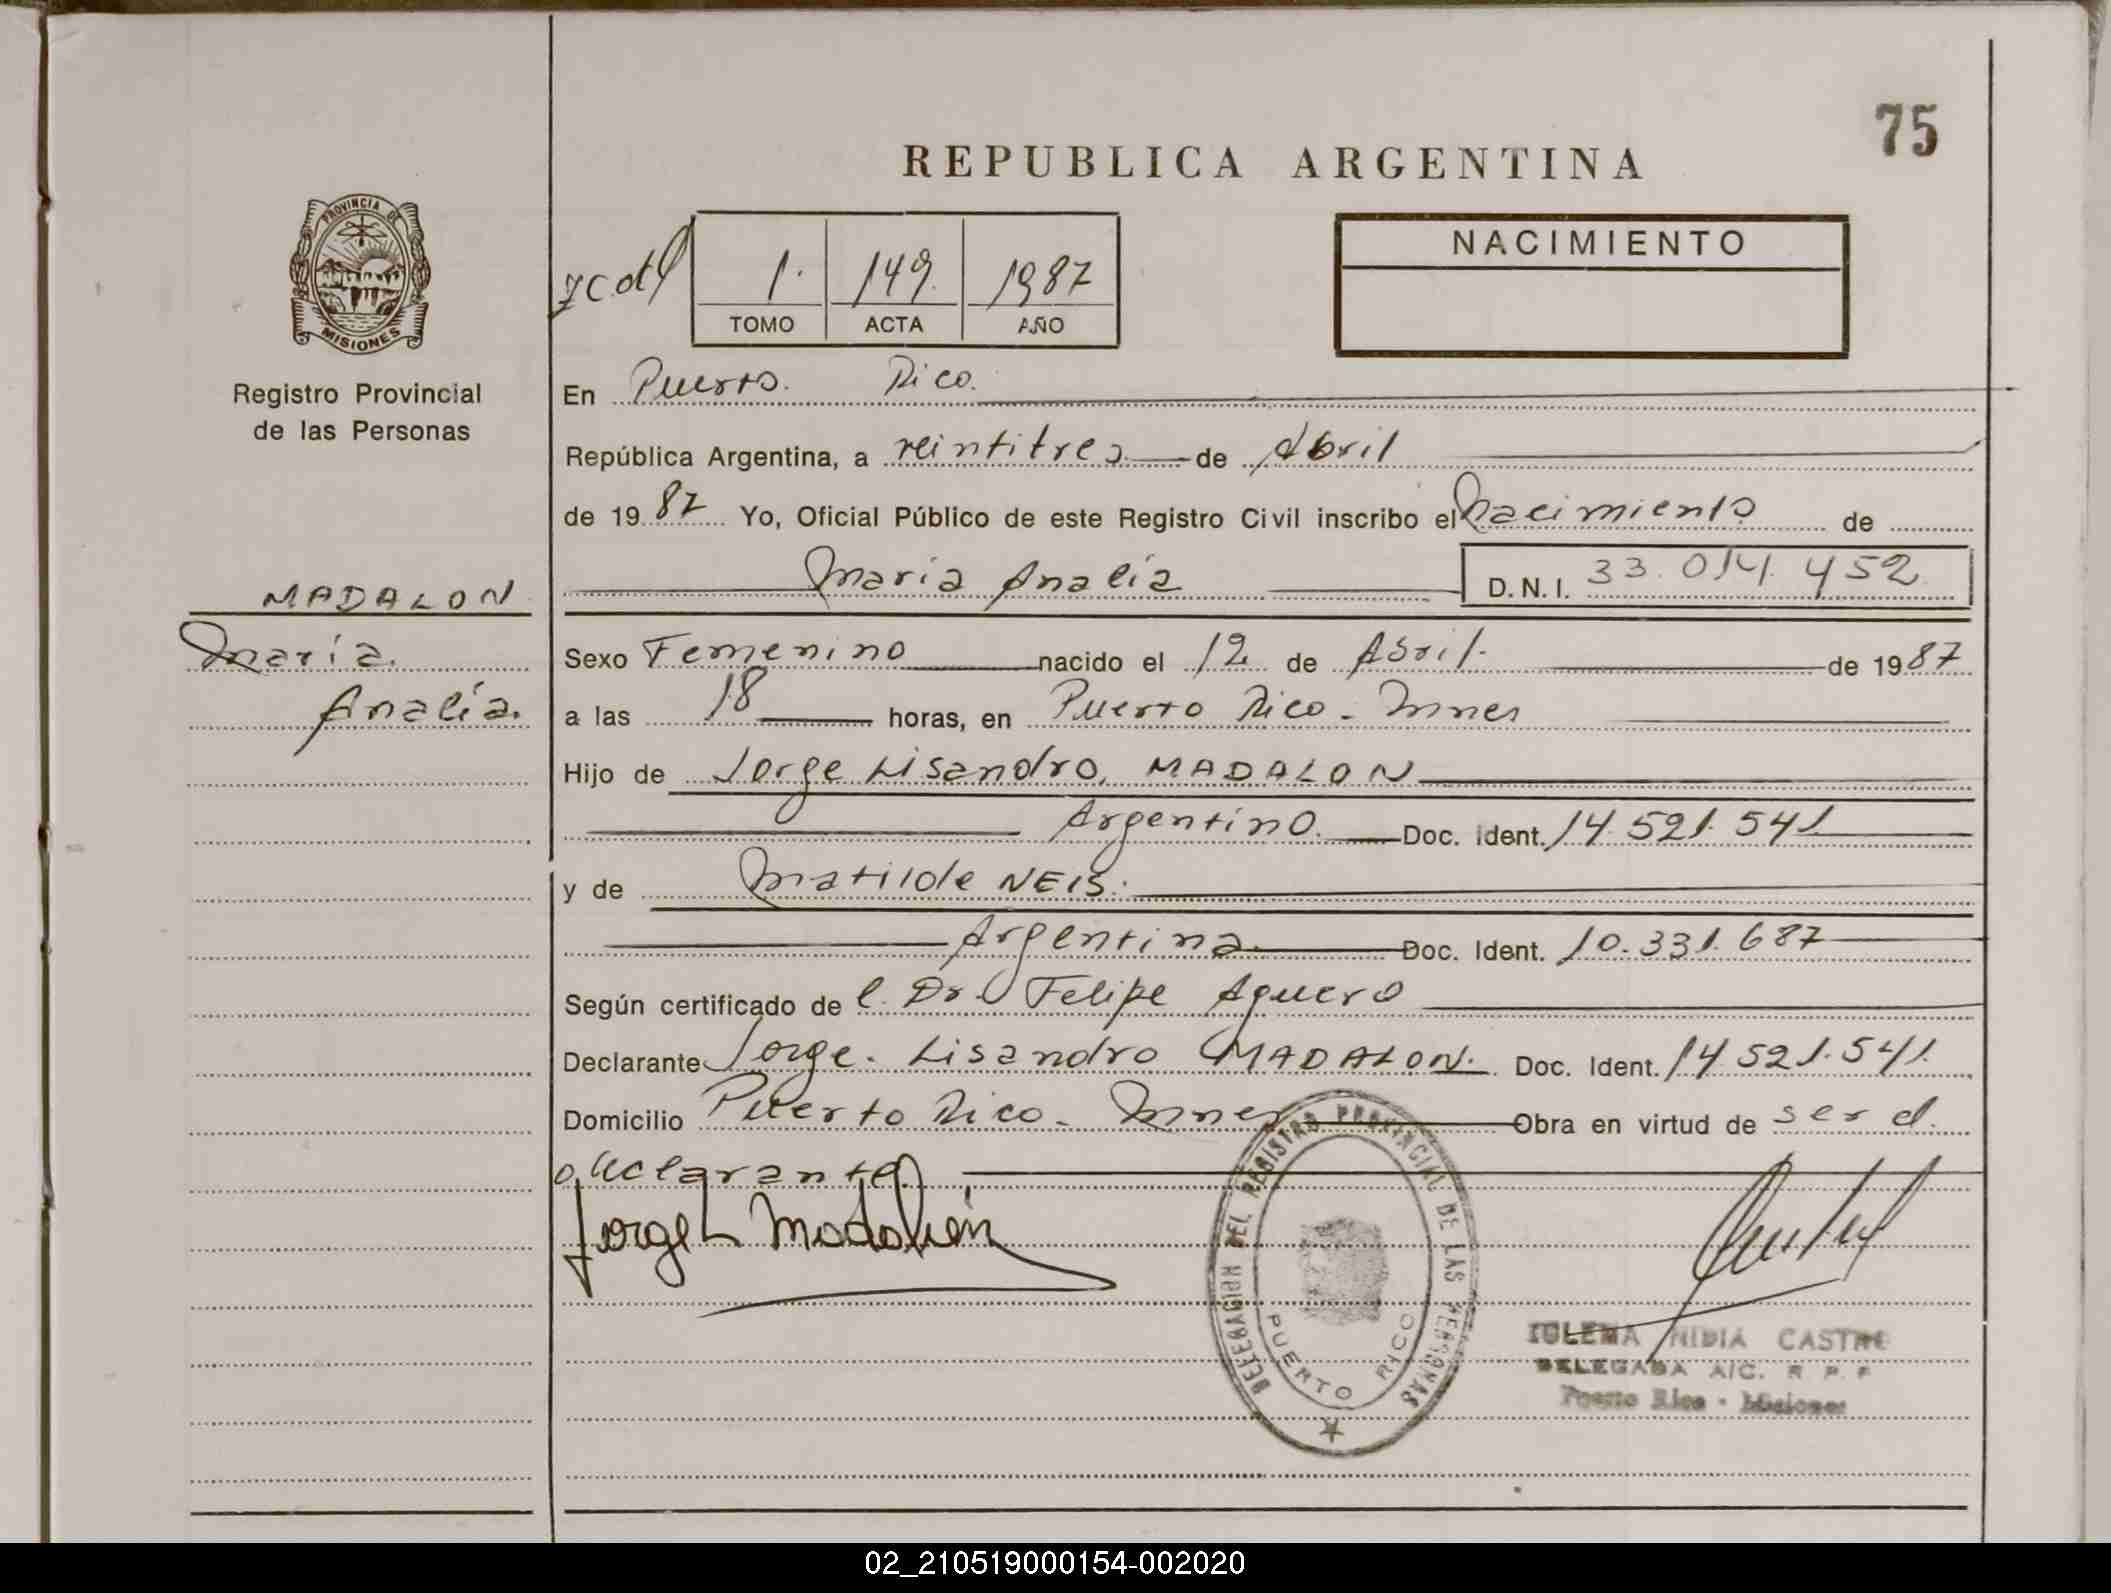 75
REPUBLICA ARGENTINA
PROVINCIA DE
MISIONES
Registro Provincial
de las Personas
1. 149. 1987
TOMO ACTA AÑO
NACIMIENTO
En Puerto. Rico.
República Argentina, a veintitres de Abril
de 1987 Yo, Oficial Público de este Registro Civil inscribo el Nacimiento de
María Analía D.N.I. 33.014.452
MADALON
María
Analía.
Sexo Femenino nacido el 12 de Abril. de 1987
a las 18 horas, en Puerto Rico - Mnes
Hijo de Jorge Lisandro, MADALON
Argentino. Doc. Ident. 14.521.541
y de Matilde NEIS.
Argentina. Doc. Ident. 10.331.687
Según certificado de l. Dr. Felipe Aguero
Declarante Jorge. Lisandro MADALON. Doc. Ident. 14.521.541.
Domicilio Puerto Rico - Mnes Obra en virtud de ser el.
declarante.
Jorge L Madalón
DELEGACION DEL REGISTRO PROVINCIAL DE LAS PERSONAS
PUERTO RICO
NIDIA CASTRO
DELEGADA A/C. R. P. P.
Puerto Rico - Misiones
02_210519000154-002020